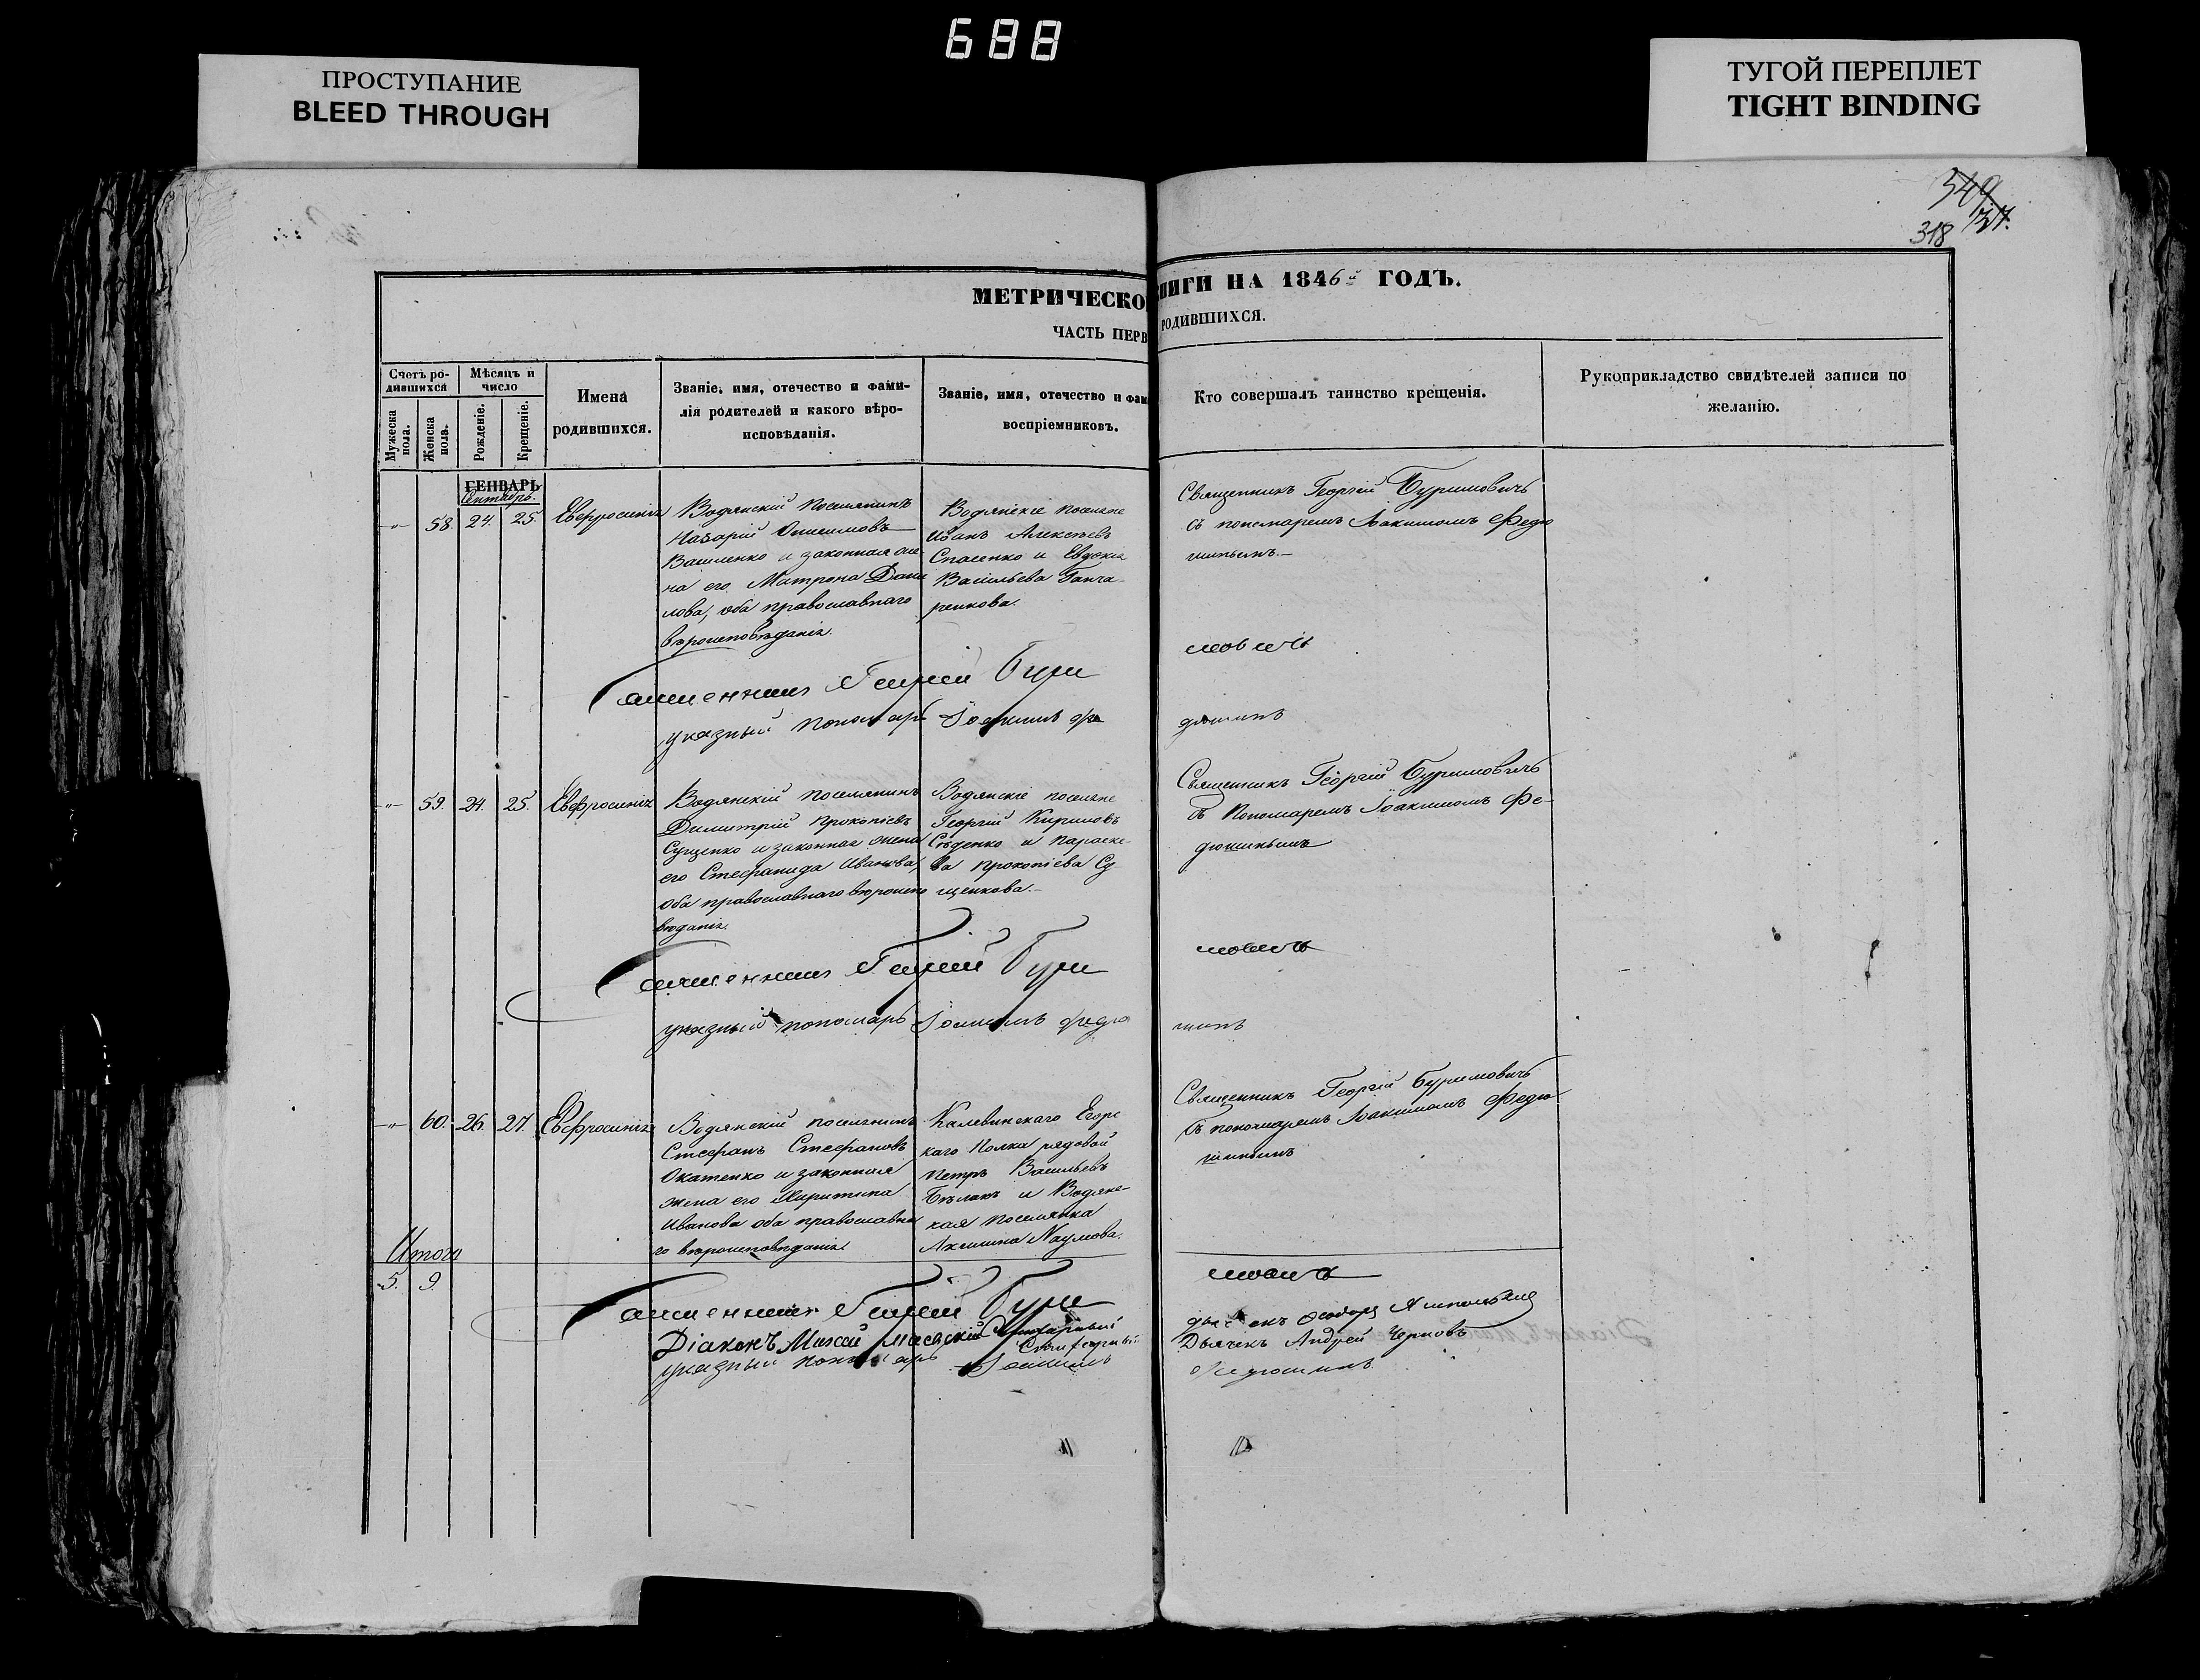 688
ПРОСТУПАНИЕ
BLEED THROUGH
ТУГОЙ ПЕРЕПЛЕТ
TIGHT BINDING
349
318
МЕТРИЧЕСКО
НИГИ НА 1846й ГОДЪ.
ЧАСТЬ ПЕРВ
РОДИВШИХСЯ.
Счетъ ро-
дившихся
Мѣсяцъ и
число
Мужеска
пола.
Женска
пола.
Рожденіе.
Крещеніе.
Имена
родившихся.
Званіе, имя, отечество и фами-
лія родителей и какого вѣро-
исповѣданія.
Званіе, имя, отечество и фам
воспріемниковъ.
Кто совершалъ таинство крещенія.
Рукоприкладство свидѣтелей записи по
желанію.
ГЕНВАРЬ
Сентябрь.
-"- 58. 24. 25. Евфросинія
Водянскій поселянинъ
Назарій Онисимовъ
и законная же
на его Матрона Дани
лова, оба православнаго
вѣроисповѣданія.
Водянскіе поселяне
Иванъ Алексѣевъ
Спасенко и Евдокія
Васильева Ганча-
ренкова.
Священникъ Георгій Буримовичь
съ пономаремъ Іоакимомъ Федю
шинымъ.-
Священникъ Георгій Бури
мовичь
указный пономарь Іоакимъ Фе
дюшинъ
-"- 59. 24. 25. Евфросинія
Водянскій поселянинъ
Димитрій Прокопіевъ
Сущенко и законная жена
его Стефанида Иванова,
оба православнаго вѣроиспо
вѣданія.
Водянскіе поселяне
Георгій Кириловъ
Сѣденко и Параске-
ва Прокопіева Су
щенкова.-
Священникъ Георгій Буримовичь
съ Пономаремъ Іоакимомъ Фе-
дюшинымъ
Священникъ Георгій Бури
мовичь
указный пономарь Іоакимъ Федю
шинъ
-"- 60. 26. 27. Евфросинія
Водянскій поселянинъ
Стефанъ Стефановъ
Окатенко и законная
жена его Харитина
Иванова оба православна
го вѣроисповѣданія.
Егерс
каго Полка рядовой
Петръ Васильевъ
Бѣлакъ и Водянс-
кая поселянка
Акилина Наумова.
Священникъ Георгій Буримовичь
съ пономаремъ Іоакимомъ Федю
шинымъ
Итого
5. 9.
Священникъ Георгій Бури
мовичь
Діаконъ
Дьячекъ Андрей Черновъ
указный пономарь Іоакимъ
Федюшинъ